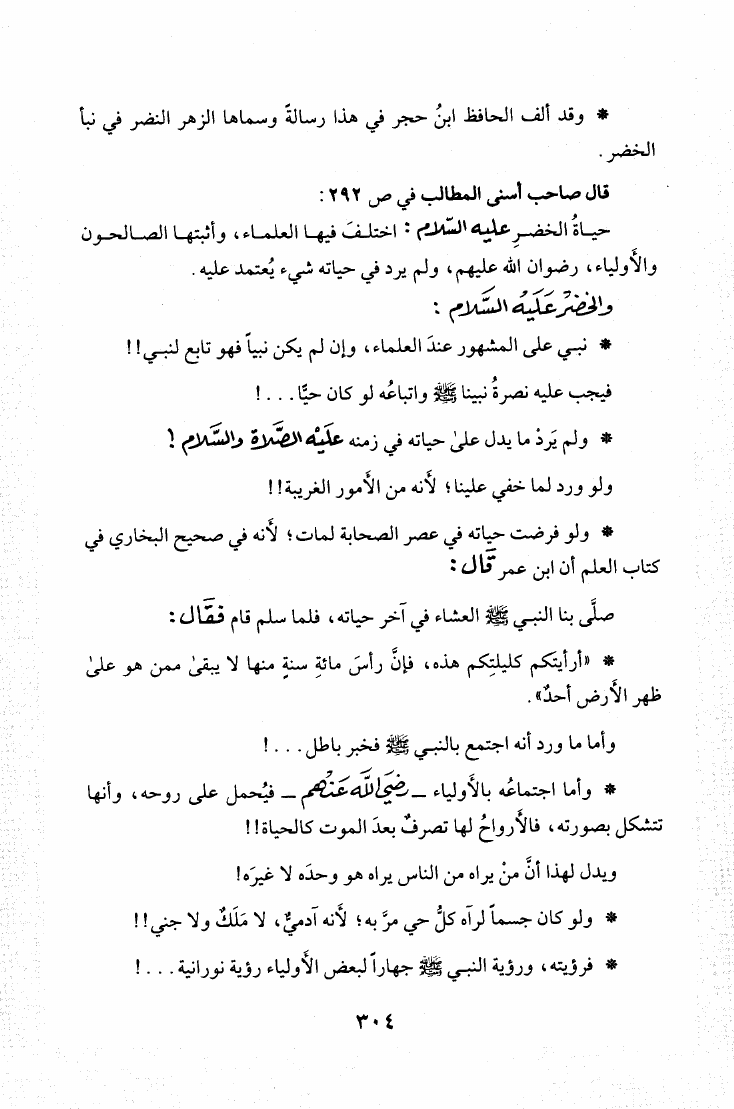 * وقد ألف الحافظ ابنُ حجر في هذا رسالةً وسماها الزهر النضر في نبأ
الخضر.
قال صاحب أسنى المطالب في ص ٢٩٢:
حيـاةُ الخضـرِ عليه السّلام: اختلـفَ فيهـا العلمـاء، وأثبتهـا الصـالحـون
والأولياء، رضوان الله عليهم، ولم يرد في حياته شيء يُعتمد عليه.
والخضرُ عَلَيهُ السَّلام:
* نبـي على المشهور عندَ العلماء، وإن لم يكن نبياً فهو تابع لنبـي!!
فيجب عليه نصرةُ نبينا ﷺ واتباعُه لو كان حيًّا...!
* ولم يَردْ ما يدل علىٰ حياته في زمنه عَلَيْه الصَّلاة والسَّلام!
ولو ورد لما خفي علينا؛ لأنه من الأمور الغريبة!!
* ولو فرضت حياته في عصر الصحابة لمات؛ لأنه في صحيح البخاري في
كتاب العلم أن ابن عمر قَال:
صلَّى بنا النبـي ﷺ العشاء في آخر حياته، فلما سلم قام فقَال:
* «أرأيتكم كليلتِكم هذه، فإنَّ رأسَ مائةِ سنةٍ منها لا يبقىٰ ممن هو علىٰ
ظهر الأرض أحدٌ».
وأما ما ورد أنه اجتمع بالنبـي ﷺ فخبر باطل...!
* وأما اجتماعُه بالأولياء ــ رضيَ اللَّه عَنهُم ــ فيُحمل على روحه، وأنها
تتشكل بصورته، فالأرواحُ لها تصرفٌ بعدَ الموت كالحياة!!
ويدل لهذا أنَّ منْ يراه من الناس يراه هو وحدَه لا غيرَه!
* ولو كان جسماً لرآه كلُّ حي مرَّ به؛ لأنه آدميٌّ، لا مَلَكٌ ولا جني!!
* فرؤيته، ورؤية النبـي ﷺ جهاراً لبعض الأولياء رؤية نورانية...!
٣٠٤